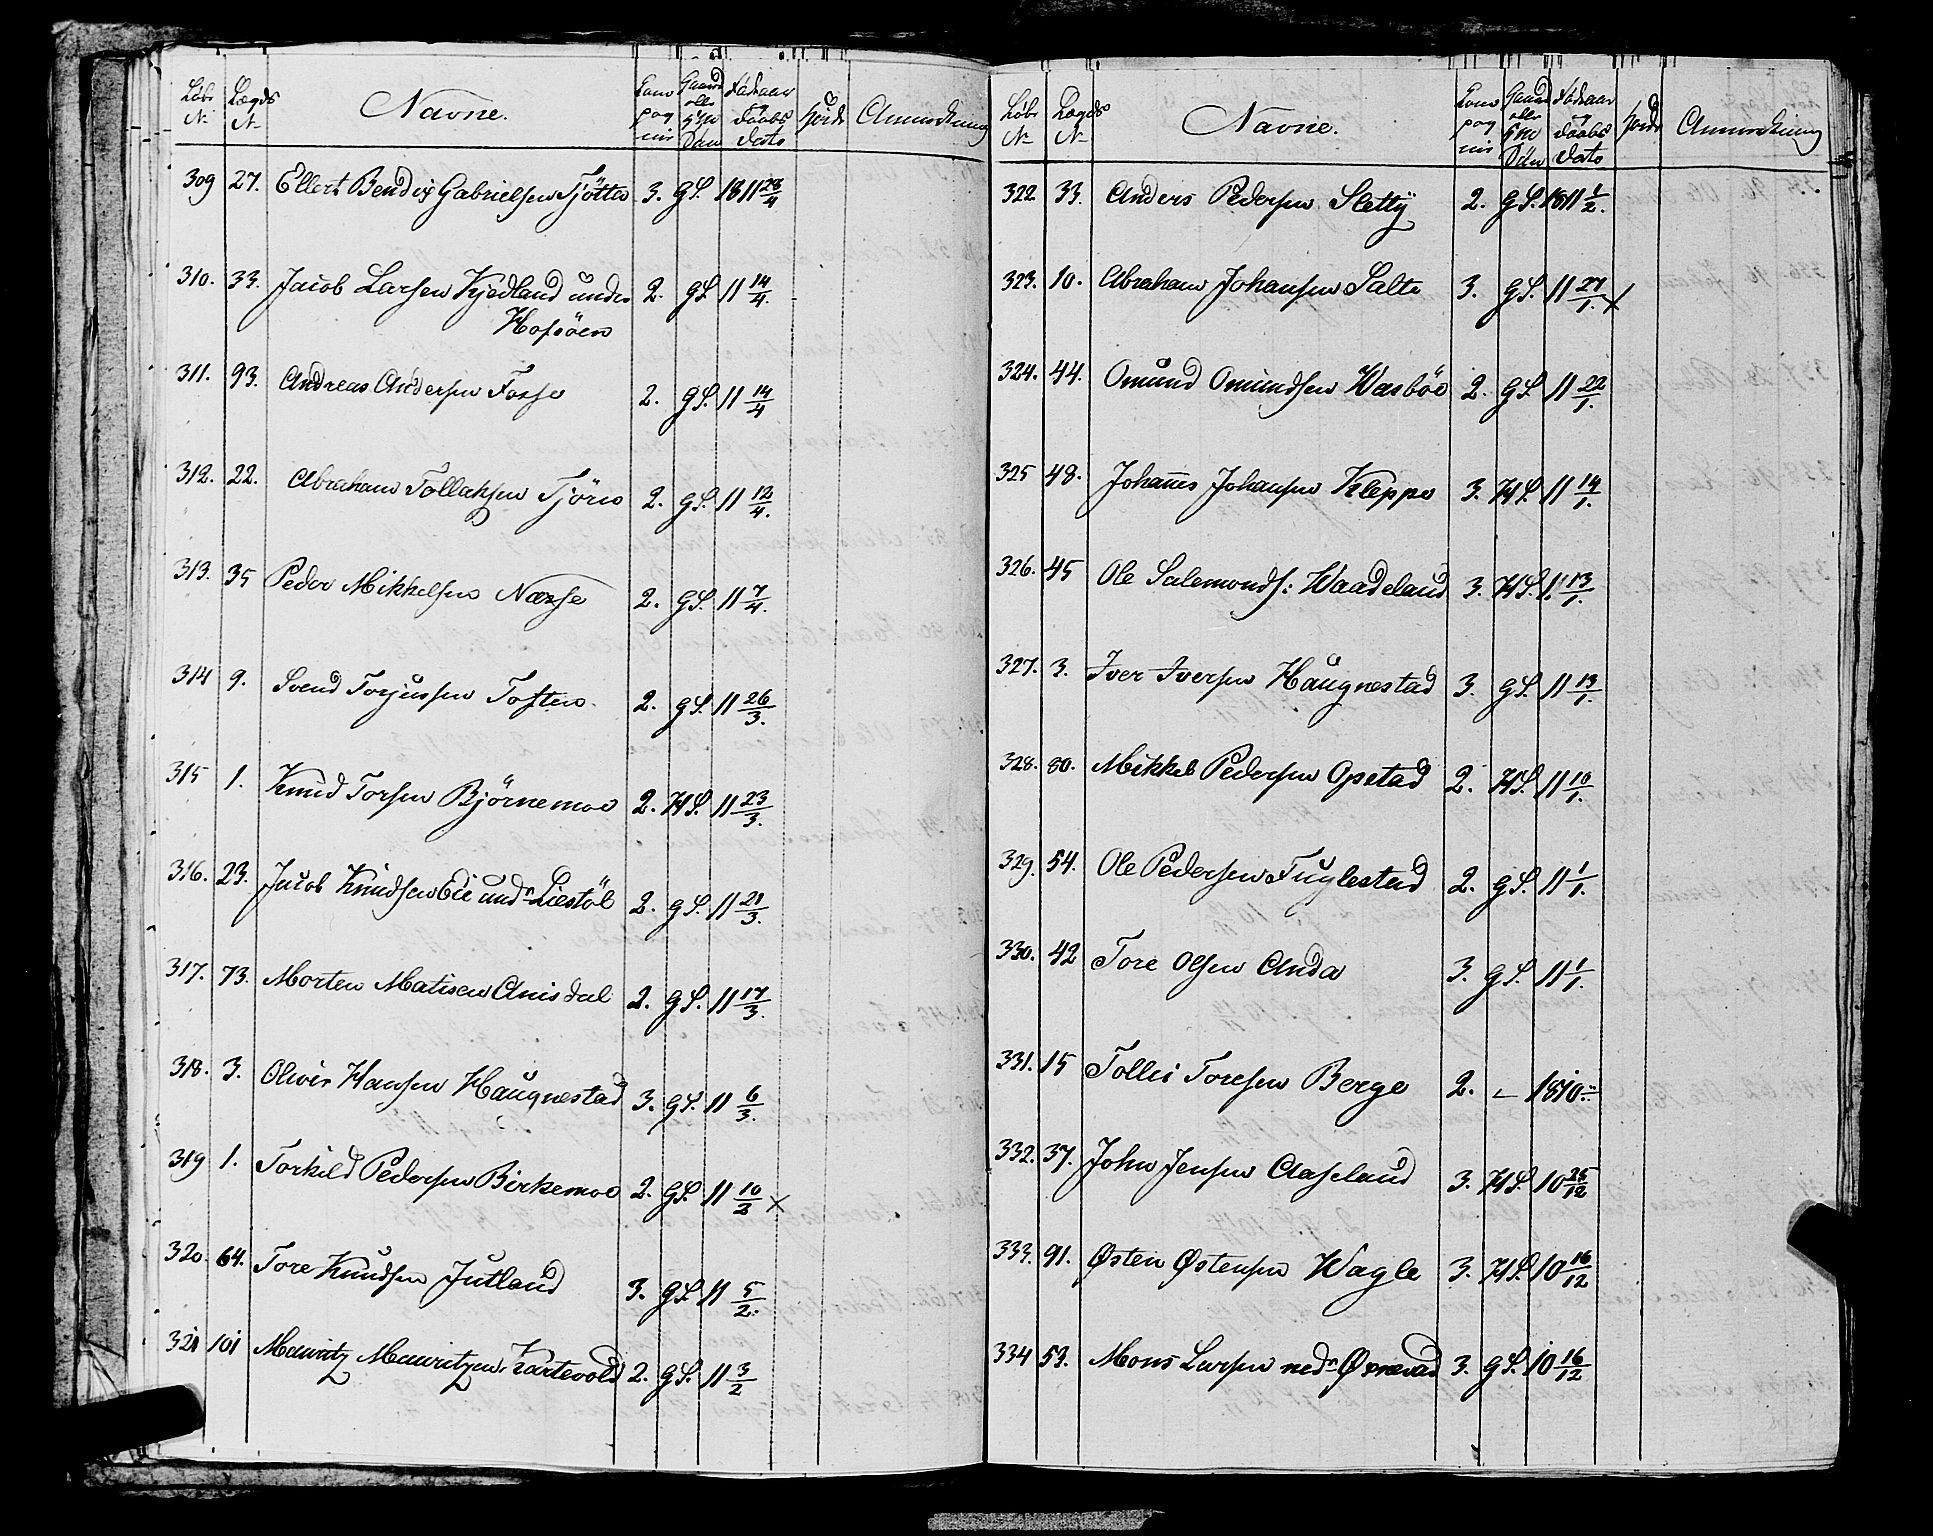 Løbe N. Lægds N. Navne. Com pag nie Gaard eller Huus Søn Fødeaar og Daabs Dato Høide Anmerkning
309 27. Ellert Bendix Gabrielsen Tjötte 3. GS. 1811 28/4
310. 33. Jacob Larsen Kjedland under 2. GS. 11 14/4.
Hofsöen
311. 93. Andreas Andersen Fosse 2. GS. 11 14/4
312. 22. Abraham Tollaksen Tjörn 2. GS. 11 12/4.
313. 35 Peder Mikkelsen Næsse 2. GS. 11 7/4.
314 9. Svend Torjussen Toften. 2. GS. 11 26/3.
315 1. Knud Torsen Björnemoe 2. HS. 11 23/3.
316. 23. Jacob Knudsen Eie undr Liestöl 2. GS. 11 21/3.
317. 73. Morten Matisen Anisdal 2. GS. 11 17/3.
318. 3. Oliver Hansen Haugnestad 3. GS. 11 6/3.
319 1. Torkild Pedersen Birkemoe 2. GS. 11 10/2 x
320. 64. Tore Knudsen Jutland 3. GS. 11 5/2.
321 101 Mauritz Mauritzen Kartevold 2. GS. 11 3/2
Løbe N. Lægds N. Navne. Com pag nie Gaard eller Huus Søn Fødeaar og Daabs Dato Høide Anmerkning
322 33. Anders Pedersen Sletty 2. GS. 1811 1/2.
323. 10. Abraham Johansen Salte 3. GS. 11 27/1. x
324. 44. Omund Omundsen Wasböe 2. GS. 11 22/1.
325 48. Johañes Johansen Kleppe 3. HS. 11 14/1.
326. 45 Ole Salemonds: Waadeland 3. HS. 11 13/1.
327. 3. Iver Iversen Haugnestad 3. GS. 11 13/1.
328. 80. Mikkel Pedersen Opstad 2. HS. 11 10/1.
329. 54. Ole Pedersen Fuglestad 2. GS. 11 1/1.
330. 42 Tore Olsen Anda 3. GS. 11 1/1.
331. 15 Tollei Toresen Berge 2. — 1810..
332. 37. John Jensen Aaseland 3. HS. 10 25/12
333. 91. Østen Østensen Wagle 3. HS. 10 16/12
334 53. Mons Larsen nedr Ørnevad 3. GS. 10 16/12